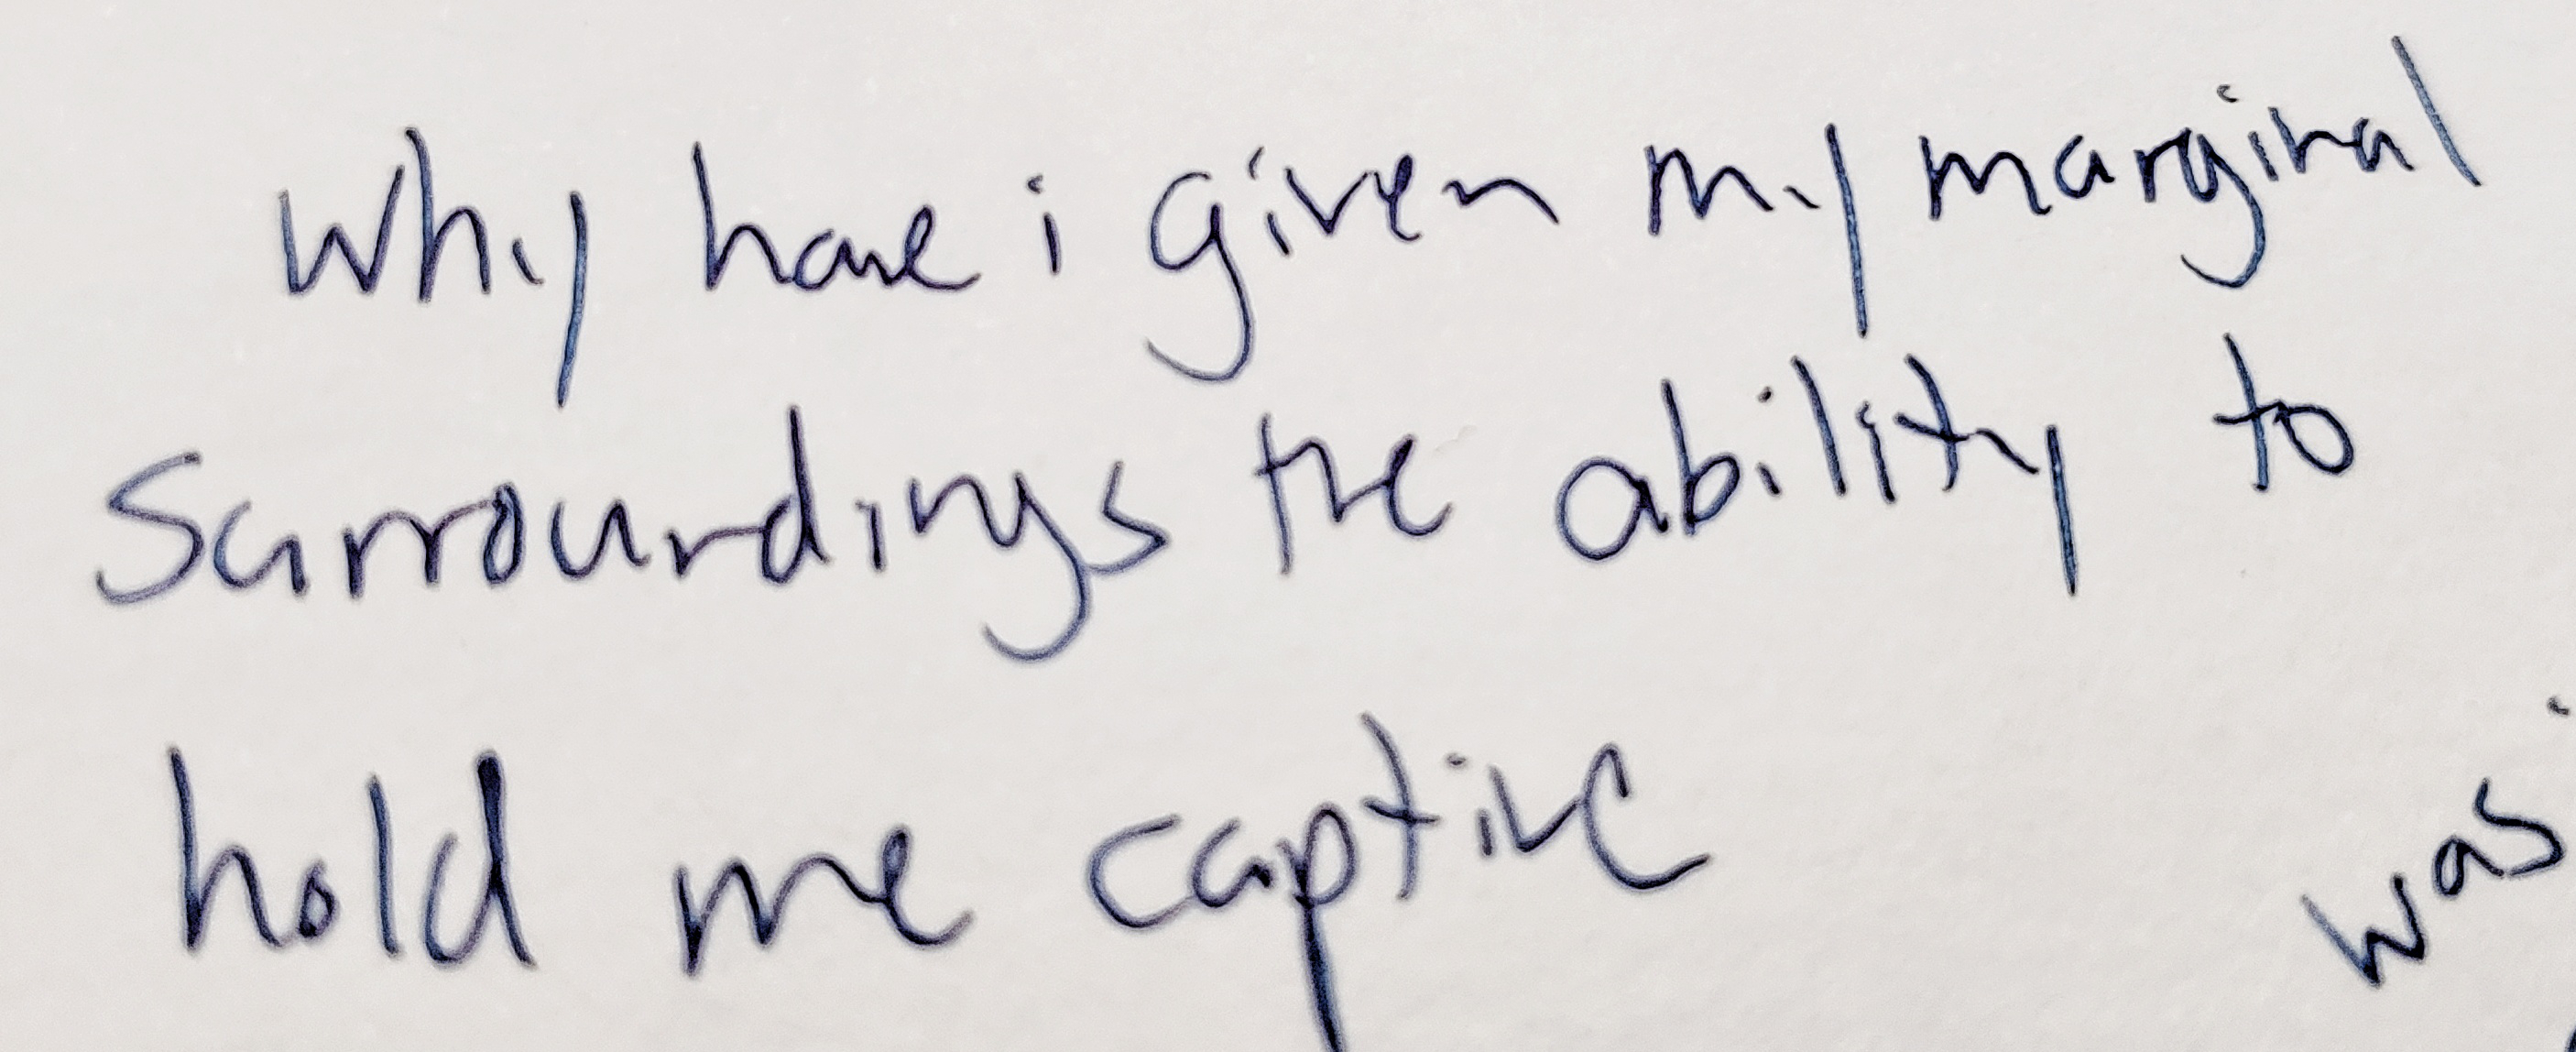 why have i given my marginal
surroundings the ability to
hold me captive
was